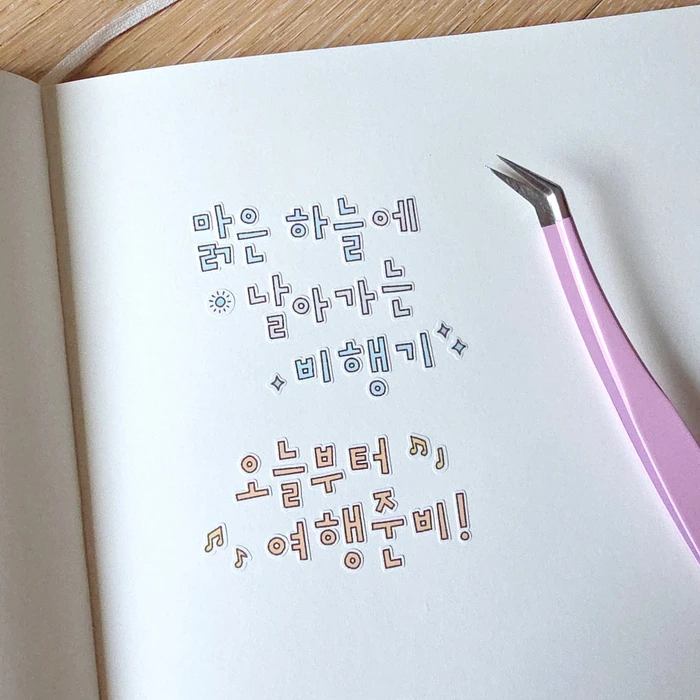 맑은 하늘에
날아가는
비행기
오늘부터
여행준비!